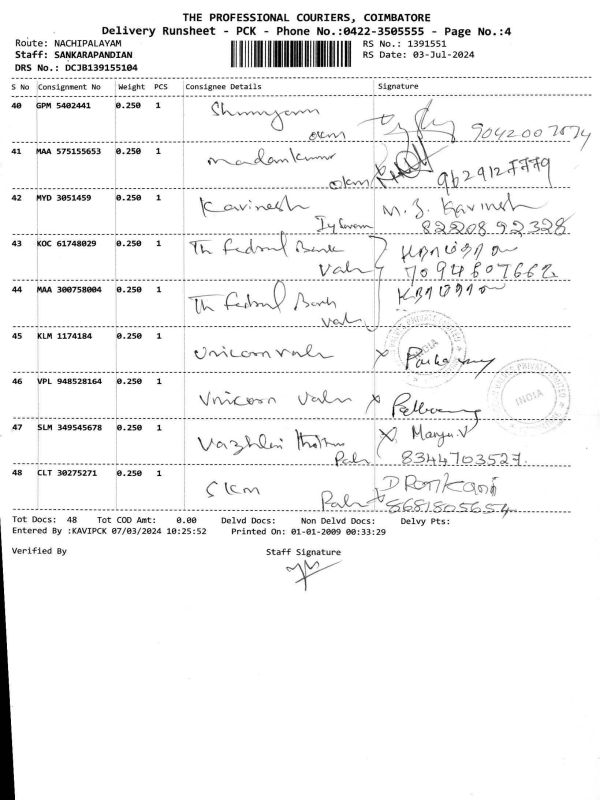 THE PROFESSIONAL COURIERS, COIMBATORE
Delivery Runsheet - PCK - Phone No.:0422-3505555 - Page No.:4
Route: NACHIPALAYAM RS No.: 1391551
Staff: SANKARAPANDIAN RS Date: 03-Jul-2024
DRS No.: DCJB139155104
S No Consignment No Weight PCS Consignee Details Signature
40 GPM 5402441 0.250 1
okm
41 MAA 575155653 0.250 1 madankumar
okm 9629127779
42 MYD 3051459 0.250 1 Kavinesh M. S. Kavinesh
8220892328
43 KOC 61748029 0.250 1 Th Fedral Bank
Valu 7094607662
44 MAA 300758004 0.250 1 Th Fedral Bank
Valu
45 KLM 1174184 0.250 1 Unicorn valu
INDIA
46 VPL 948528164 0.250 1 Unicorn valu
PRIVATE LIMITED
INDIA
47 SLM 349545678 0.250 1 Manju.V
8344703527.
48 CLT 30275271 0.250 1 SKM
8681805654
Tot Docs: 48 Tot COD Amt: 0.00 Delvd Docs: Non Delvd Docs: Delvy Pts:
Entered By :KAVIPCK 07/03/2024 10:25:52 Printed On: 01-01-2009 00:33:29
Verified By Staff Signature